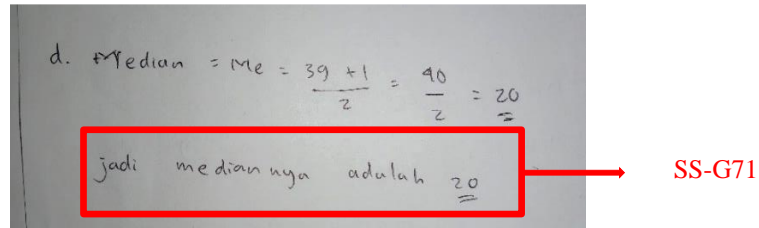 d. Median = Me = 39 + 1 / 2 = 40 / 2 = 20
jadi mediannya adalah 20
SS-G71